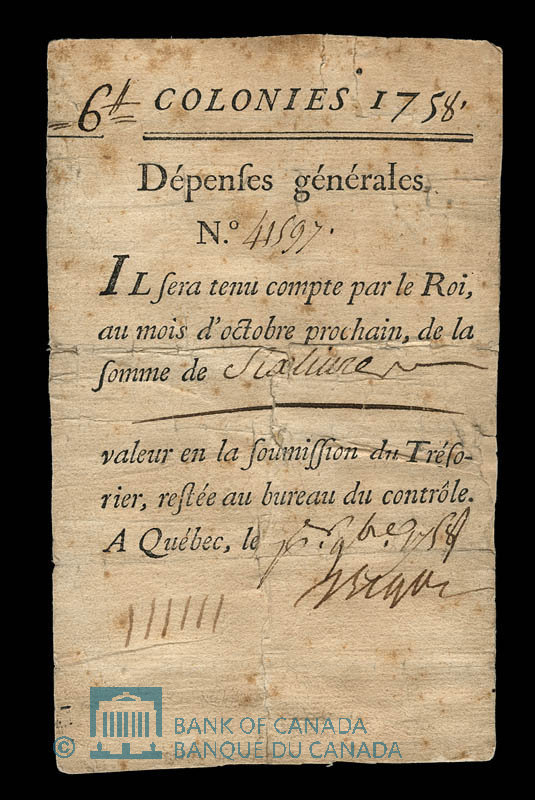 6lt COLONIES 1758.
Dépenſes générales.
N.º 41597.
IL ſera tenu compte par le Roi,
au mois d'octobre prochain, de la
ſomme de Six livres
valeur en la ſoumiſſion du Tréſo-
rier, reſtée au bureau du contrôle.
A Québec, le 1758
Bigot
BANK OF CANADA
© BANQUE DU CANADA